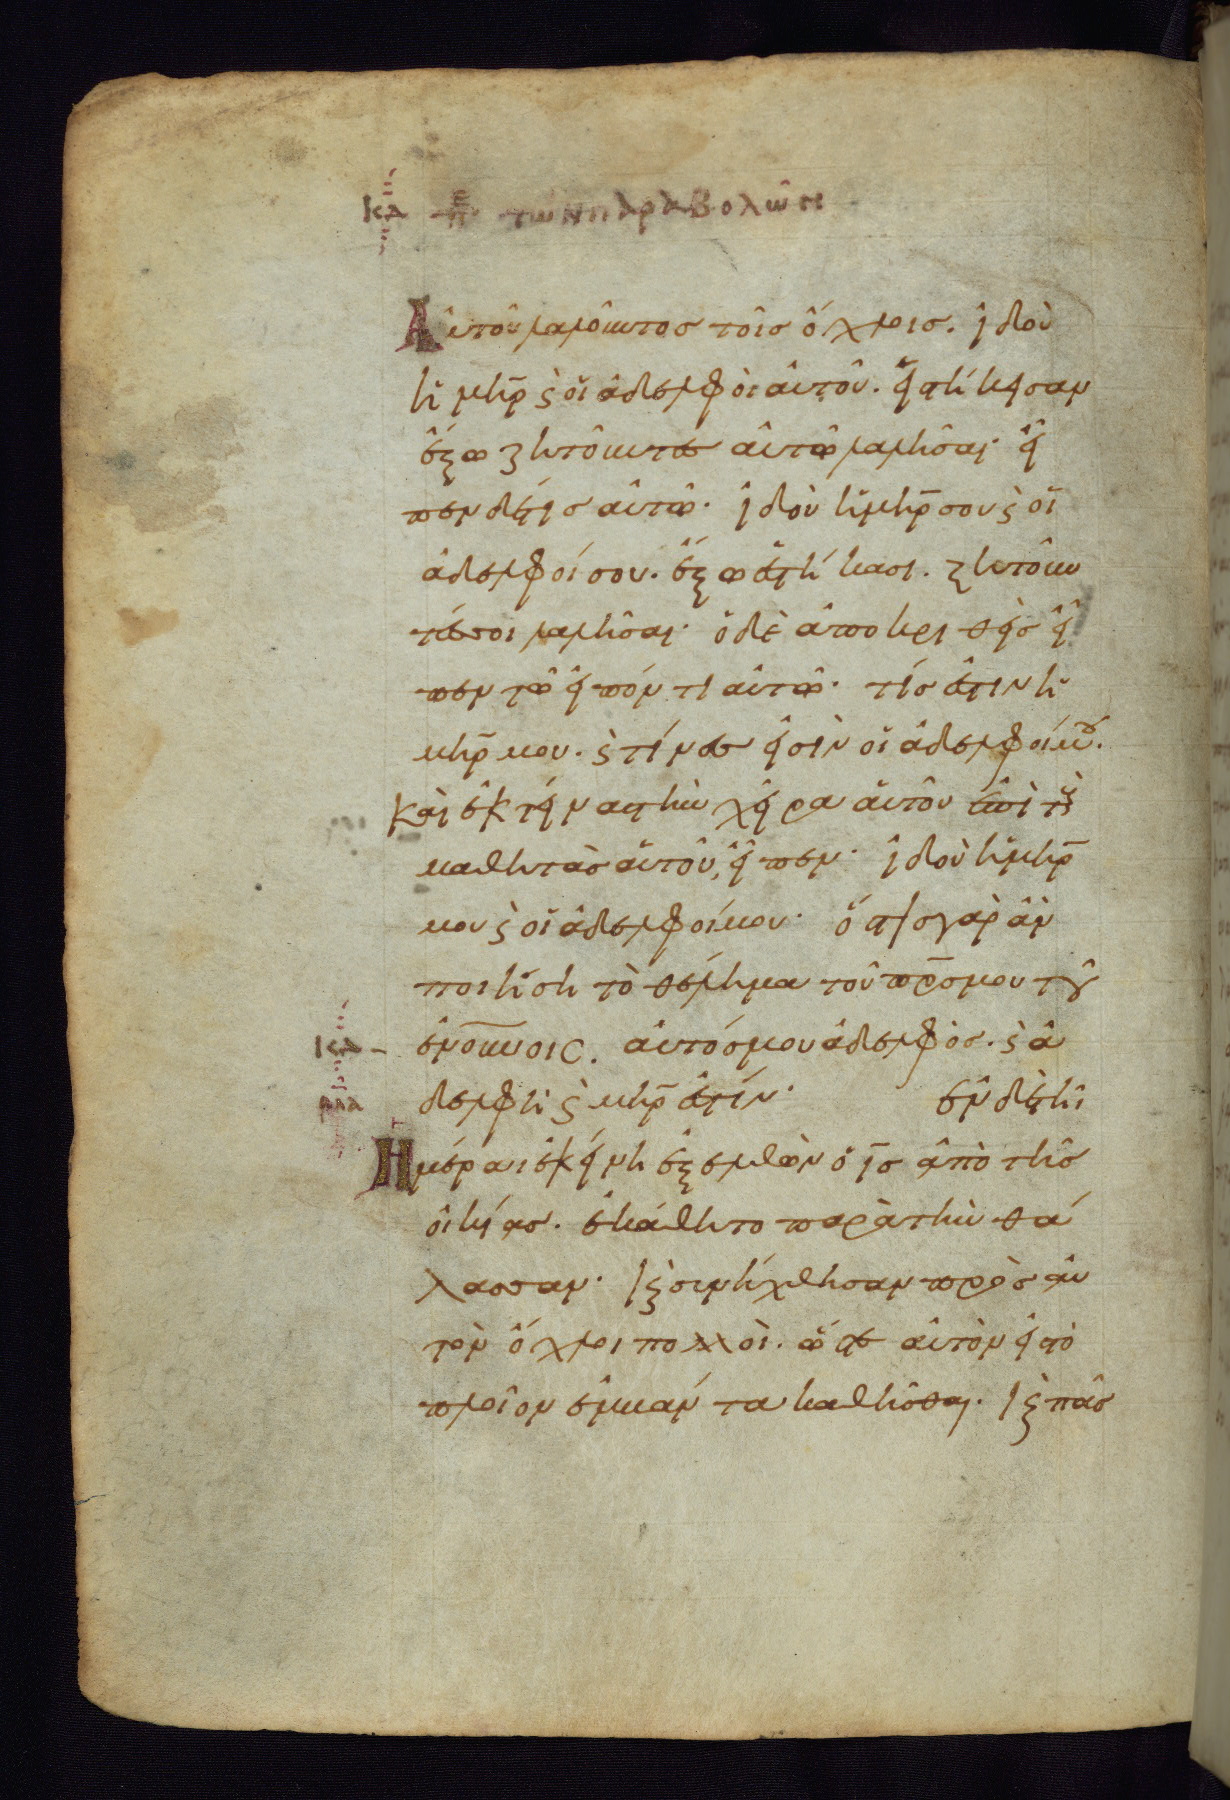 κδ π͞ε τῶν παραβολῶν
Αὐτοῦ λαλοῦντος τοῖς ὄχλοις. ἰδοὺ
ἡ μη̅ρ ϗ οἱ ἀδελφοὶ αὐτοῦ. εἱστήκεισαν
ἔξω ζητοῦντες αὐτῶ λαλῆσαι· εἶ
πεν δέ τις αὐτῶ· ἰδοὺ ἡ μη̅ρ σου ϗ οἱ
ἀδελφοί σου. ἔξω ἑστήκασι. ζητοῦν
τές σοι λαλῆσαι· ὁ δὲ ἀποκριθεὶς εἶ
πεν τῶ εἰπόντι αὐτῶ· τίς ἐστιν ἡ
μη̅ρ μου. ϗ τίνες εἰσὶν οἱ ἀδελφοί μου.
Καὶ ἐκτείνας τὴν χεῖρα αὑτοῦ ἐπὶ τοὺς
μαθητὰς αὑτοῦ, εἶπεν· ἰδοὺ ἡ μη̅ρ
μου ϗ οἱ ἀδελφοί μου· ὅστις γὰρ ἂν
ποιήση τὸ θέλημα τοῦ π̅ρ̅ς μου τοῦ
ἐν ο̅υ̅νοις. αὐτός μου ἀδελφὸς. ϗ ἀ
δελφὴ ϗ μη̅ρ ἐστίν· ἐν δὲ τῆ
Ἡμέρα ἐκείνη ἐξελθὼν ὁ ι̅ς ἀπὸ τῆς
οἰκίας. ἐκάθητο παρὰ τὴν θά
λασσαν· ϗ συνήχθησαν πρὸς αὐ
τὸν ὄχλοι πολλοὶ. ὥστε αὐτὸν εἰς τὸ
πλοῖον ἐμβάντα καθῆσθαι· ϗ πᾶς